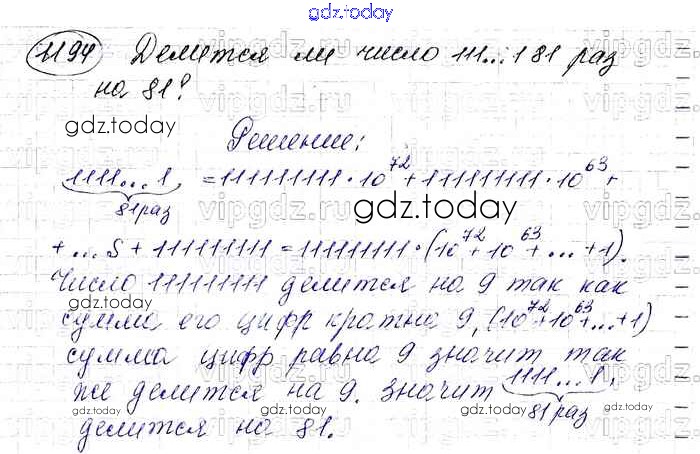 gdz.today
1194 Делится ли число 111...1 81 раз
на 81?
gdz.today
Решение:
1111...1 = 111111111·10^72 + 111111111·10^63 +
81 раз
gdz.today
+ ... S + 111111111 = 111111111·(10^72 + 10^63 + ... + 1).
Число 111111111 делится на 9 так как
сумма его цифр кратна 9, (10^72+10^63+...+1)
сумма цифр равна 9 значит так
же делится на 9. значит 1111...1,
81 раз
gdz.today
gdz.today
gdz.today
делится на 81.